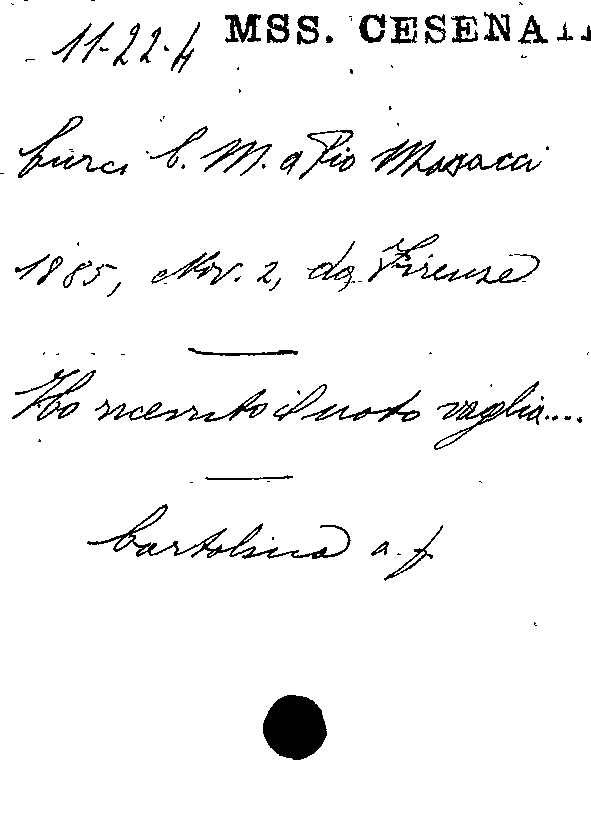 11-22-4 MSS. CESENA
Curci C. M. a Pio Masacci
1885, Nov. 2, da Firenze
Ho ricevuto il noto vaglia....
Cartolina a. f.